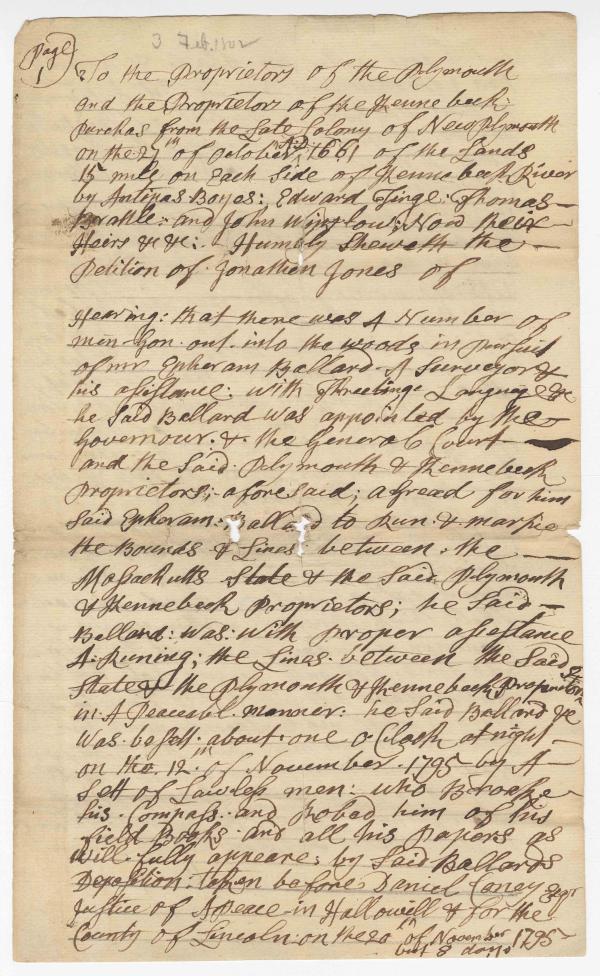 3 Feb. 1802
Page
1
To the Proprietors of the Plymouth
and the Proprietors of the Kennebeck
purchas from the Late Colony of New Plymouth
on the 27th of october AD 1661 of the Lands
15 mils on Each Side of Kennebeck River
by Antipas Boyes: Edward Tinge: Thomas
Brattle: and John Winslow; Now their
Heirs &c &c: Humbly Sheweth the
Petition of Jonathen Jones of
Hearing: that there was A Number of
men Gon out into the woods in pursuit
of mr Epheram Ballard A Surveyor &
his assistance: with Threttings Languege &c
he Said Ballard was appointed by the
Governour. & the General Court
and the Said. Plymouth & Kennebeck
Proprietors; aforesaid; agread for him
Said Epheram: Ballard to Run & marke
the Bounds & Lines between the
Massachutts State & the Said Plymouth
& Kennebeck Proprietors; he Said
Ballard: was: with proper assistance
A Runing; the Lines between the Said
State & the Plymouth & Kennebeck Proprietors
in A Peaceabl. manner: he Said Ballard &c
was besett about one o Clock at night
on the 12th of November 1795 by A
Sett of Lawless men: who Broake
his Compass: and Robed him of his
field Books and all his Papers as
will fully appeare by Said Ballards
Deposition: taken before Daniel Coney Esqr
Justice of A peace in Hallowell & for the
County of Lincoln on the 20th of November 1795
but 8 days